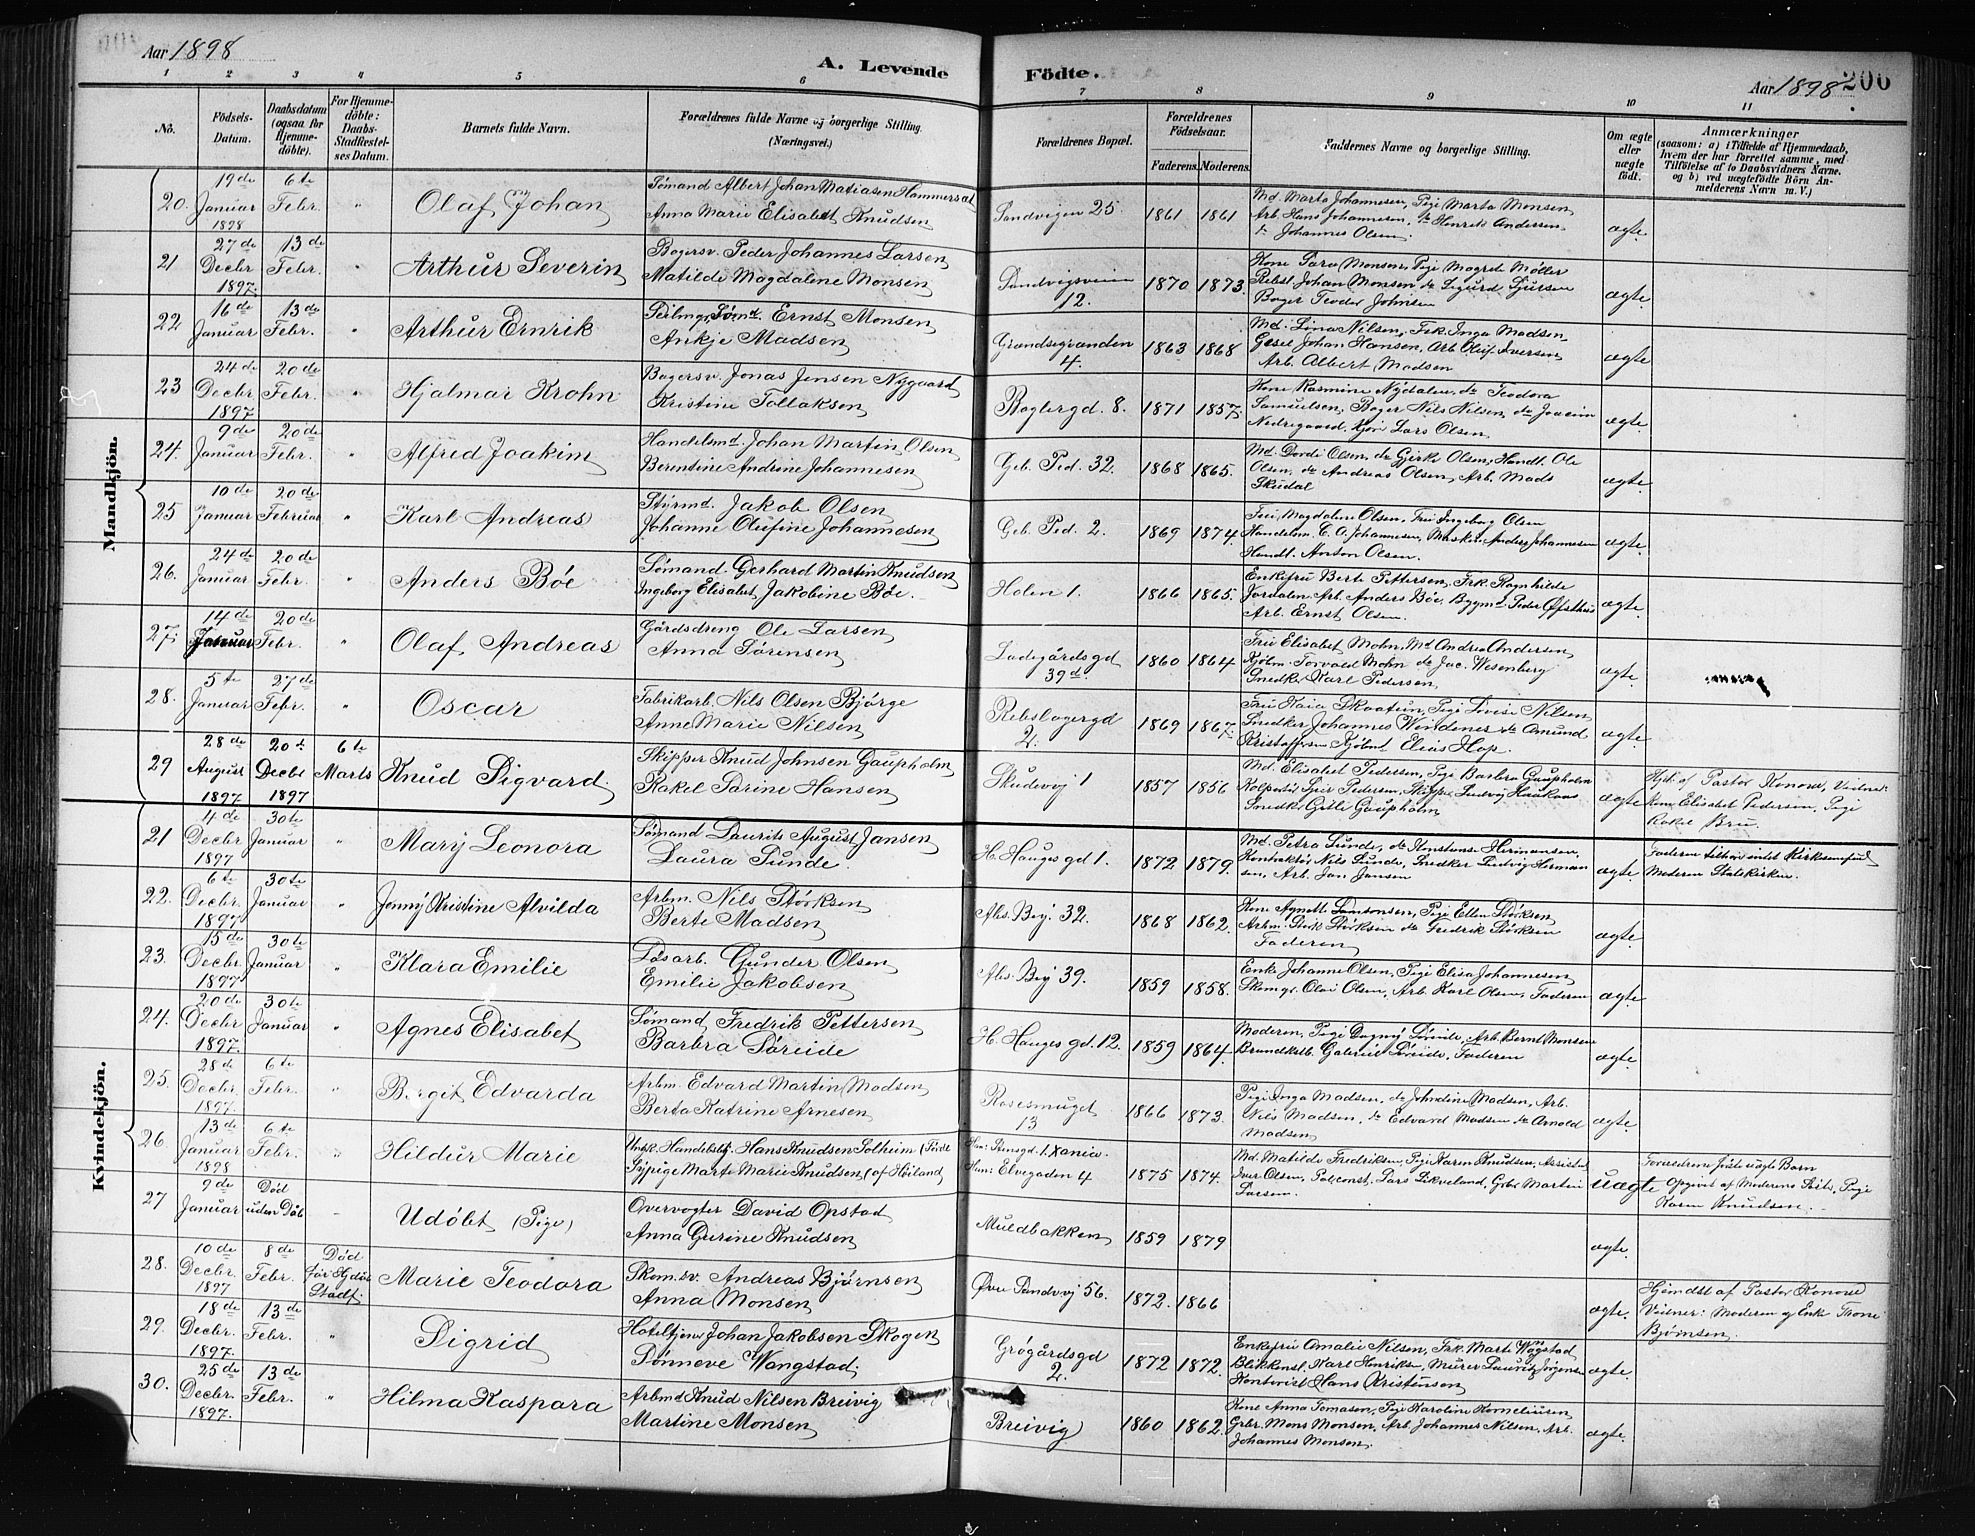 Aar 1898
A. Levende Födte.
Aar 1898
206
1 2 3 4 5 6 7 8 9 10 11
No.
Födsels-Datum.
Daabsdatum (ogsaa for Hjemme-döbte).
For Hjemme-döbte: Daabs-Stadfæstel-ses Datum.
Barnets fulde Navn.
Forældrenes fulde Navne og borgerlige Stilling. (Næringsvei.)
Forældrenes Bopæl.
Forældrenes Födselsaar.
Faderens. Moderens.
Faddernes Navne og borgerlige Stilling.
Om ægte eller uægte födt.
Anmærkninger
(saasom: a) i Tilfælde af Hjemmedaab, hvem der har forrettet samme, med Tilföielse af to Daabsvidners Navne, og b) ved uægtefödte Börn An-melderens Navn m. V.)
Mandkjön.
20. 19de Januar 1898 6te Febr. " Olaf Johan
Sømand Albert Johan Matiasen Hammersat
Anna Marie Elisabet Knudsen
Sandvigen 25. 1861 1861
Md. Marta Johannesen, Pige Marta Monsen
Arb. Hans Johannesen, do Henrik Andersen
do Johannes Olsen.
ægte.
21 27de Decbr 1897. 13de Febr. " Arthur Severin
Bagersv. Peder Johannes Larsen
Matilde Magdalene Monsen
Sandvigsveien 12. 1870 1873.
Kone Sara Monsen, Pige Magrete Møller
Rebsl Johan Monsen do Sigurd Sjursen
Bager Teodor Johnsen
ægte.
22 16de Januar 13de Febr. " Arthur Ernrik
Seilmgr. Sømd. Ernst Monsen
Ankje Madsen
Grandsegranden 4. 1863 1868
Md. Lina Nilsen, Frk. Inga Madsen
Gesel Johan Hansen, Arb Oluf Iversen
Arb. Albert Madsen
ægte.
23 24de Decbr. 1897 20de Febr. " Hjalmar Krohn
Bagersv. Jonas Jensen Nygaard
Kristine Tollaksen
Baglergd. 8. 1871 1857.
Kone Rasmine Nydalen, do Teodora
Samuelsen, Bager Nils Nilsen, do Joacim
Nedregaard, Kjøri Lars Olsen.
ægte.
24. 9de Januar 20de Febr. " Alfred Joakim
Handelsmd. Johan Martin Olsen
Berentine Andrine Johannesen
Geb. Ped. 32. 1868 1865.
Md. Dordi Olsen, do Gjerke Olsen, Handl. Ole
Olsen, do Andreas Olsen, Arb. Mads
Skudal
ægte.
25 10de Januar 20de Februar " Karl Andreas
Styrmd. Jakob Olsen
Johanne Olufine Johannesen
Geb Ped. 2. 1869 1874.
Frü, Magdalene Olsen, Frü Ingeborg Olsen
Handelsm. C. A. Johannesen, Maskin. Anders Johannesen
Handl. Anton Olsen.
ægte.
26. 24de Januar 20de Febr. " Anders Böe
Sømand. Gerhard Martin Knudsen
Ingeborg Elisabet Jakobine Böe.
Holen 1. 1866 1865.
Enkefru Berte Pettersen, Frk. Ragnhilde
Jordalen Arb. Anders Böe, Bygmd. Peder
Arb. Ernst Olsen.
ægte.
27. 14de Januar 20de Febr. " Olaf Andreas
Gårdsdreng Ole Larsen
Anna Sörensen
Ladegårdsgd 39d. 1860 1864
Frü Elisabet Mohn, Md Andrea Andersen
Kjøbm. Torvald Mohn do Jac. Wesenberg
Snedker Karl Pedersen
ægte.
28. 5te Januar 27de Febr. " Oscar
Fabrikarb. Nils Olsen Bjørge
Anne Marie Nilsen
Rebslagergd 2. 1869 1867.
Frü Kaia Skaatun, Pige Lovise Nilsen
Snedker Johannes Windenes do Amund
Kristoffersen Kjøbmd Elias Hop.
ægte.
29 28de August 1897 20de Decbr 1897 6te Marts Knud Sigvard
Skipper Knud Johnsen Gaupholm
Rakel Sarine Hansen
Skudevij 1 1857 1856
Md. Elisabet Pedersen, Pige Barbra Gaupholm
Kolportør Peder Pedersen, Skipper Ludvig Haukaas
Snedker Gitle Gaupholm
ægte
Hjd. af Pastor Konow, Vidner:
Kone Elisabet Pedersen, Pige
Rakel Bru.
Kvindekjön.
21 4de Decbr 1897 30te Januar " Mary Leonora
Sømand Laurits August Jansen
Laura Sunde.
H. Hauges gd 1. 1872 1879.
Md. Petra Sunde, do Konstanse Hermansen,
Kontraktør Nils Sunde, Snedker Ludvig Herman
sen, Arb. Jan Jansen
ægte.
Faderen tilhør intet Kirkesamfund
Moderen Statskirken.
22. 6te Decbr. 1897 30te Januar " Jenny Kristine Alvilda
Arbm. Nils Störksen
Berte Madsen
Abs. Beyj 32. 1868 1862.
Kone Agnete Samsonsen, Pige Ellen Störksen
Arbm. Störk Störksen do Fredrik Störksen
Faderen
ægte.
23. 15de Decbr. 1897 30te Januar " Klara Emilie
Løsarb. Gunder Olsen
Emilie Jakobsen
Abs. Beyj 39. 1859 1858.
Enke Johanne Olsen, Pige Elisa Johannesen
Skomgr. Olai Olsen, Arb. Karl Olsen, Faderen
ægte
24. 20de Decbr 1897. 30te Januar " Agnes Elisabet
Sømand Fredrik Pettersen
Barbra Søreide
H. Hauges gd. 12. 1859 1864.
Moderen, Pige Dagny Søreide, Arb. Bernt Monsen
Brandkstb. Gabriel Søreide, Faderen
ægte
25. 28de Decbr. 1897. 6te Febr. " Birgit Edvarda
Arbm. Edvard Martin Madsen
Berta Katrine Arnesen
Rosesmuget 13 1866 1873.
Pige Inga Madsen, do Johndine Madsen, Arb.
Nils Madsen, do Edvard Madsen do Arnold
Madsen
ægte.
26. 13de Januar 1898 6te Febr. " Hildur Marie
Ungk. Handelsb. Hans Knudsen Solheim (Förde
Sypige Marte Marie Knudsen (af Høiland
Han: 1. Xania.
Hun: Elvegaden 4 1875 1874.
Md. Matilde Fredriksen, Pige Karen Knudsen, Assistet
Iver Olsen, Polconst. Lars Likveland, Grbr Martin
Larsen.
uægte
Forældrene første uægte Barn
Opgivet af Moderens Søster, Pige
Karen Knudsen.
27 9de Januar Död uden Dåb - Udöbt (Pige)
Overvogter David Opstad
Anna Gurine Knudsen
Muldbakken 1859 1879
ægte.
28. 10de Decbr. 1897 8de Febr. Död før Hjdøb Stadf. Marie Teodora
Skom.sv. Andreas Bjørnsen
Anna Monsen
Øvre Sandvj 56. 1872. 1866
ægte.
Hjemdbt af Pastor Konow
Vidner: Moderen og Enke Trone
Bjørnsen.
29. 18de Decbr. 1897. 13de Febr. " Sigrid
Hoteltjener Johan Jakobsen Skogen
Sönneve Wangstad.
Grøgårdsgd 2. 1872 1872.
Enkefru Amalie Nilsen, Frk. Marta Wangstad
Blikkensl. Karl Henriks, Murer Laurits Jørgens
Kontorist Hans Kristensen
ægte.
30. 25de Decbr. 1897. 13de Febr. " Hilma Kaspara
Arbmd Knud Nilsen Breivig
Martine Monsen
Breivig 1860 1862.
Kone Anna Tomasen, Pige Karoline Korneliusen
Grbr. Mons Monsen, Arb. Johannes Nilsen, Arb.
Johannes Monsen.
ægte.